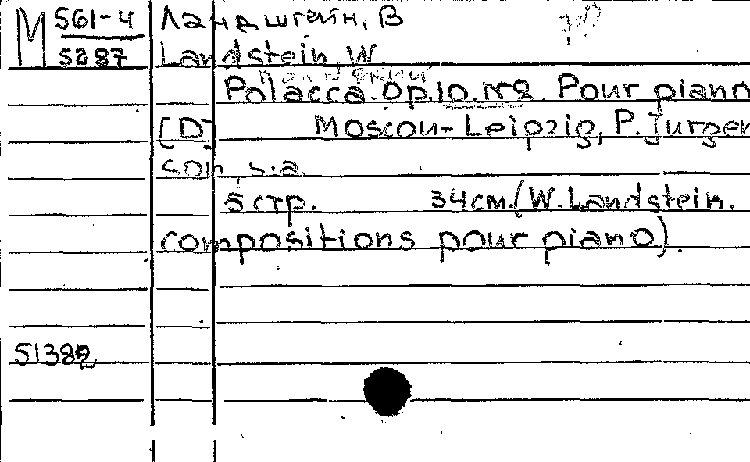 М 561-4 Ландштейн, В
5287 Landstein, W.
Polacca. Op.10. №8. Pour piano
[D] Moscou-Leipzig, P. Jurgen
son, s.a.
5 стр. 34 см. (W. Landstein.
compositions pour piano).
51382